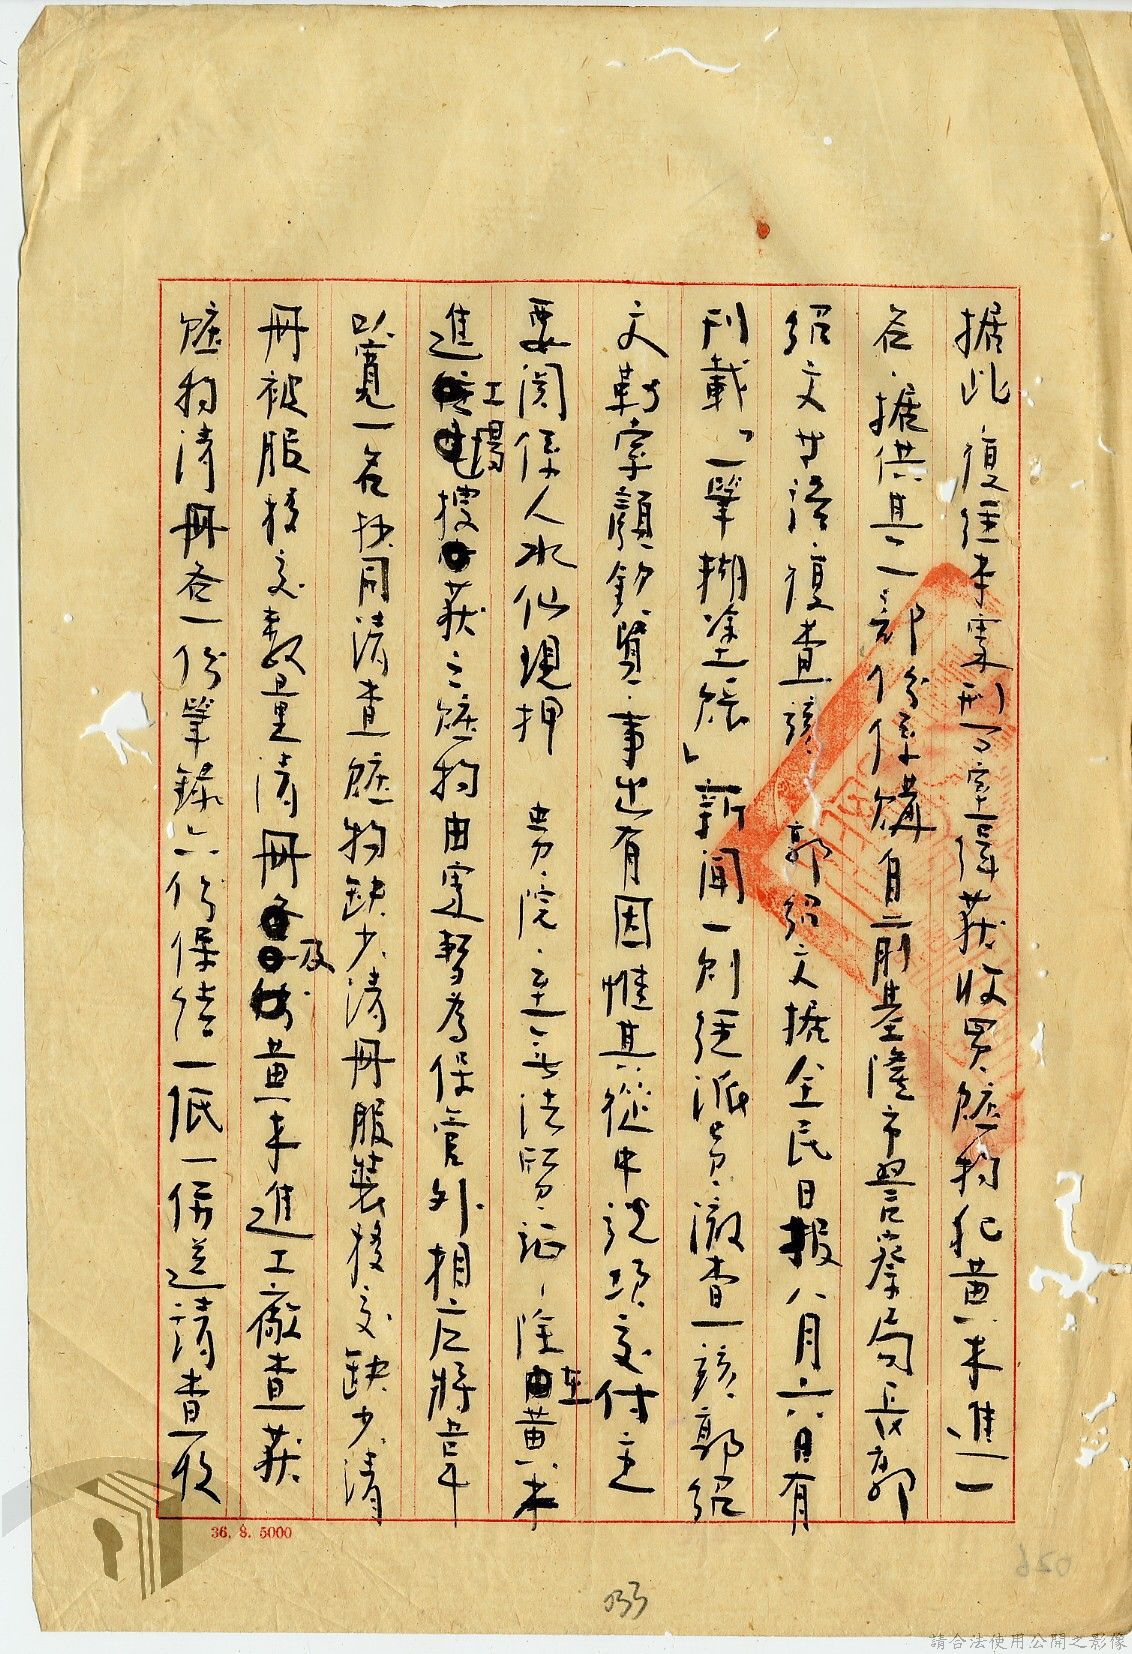 據此復經本室刑事室偵獲收買贓物犯黃來進一
名據供其一部份係購自前基隆市警察局長郭
紹文等語復查該郭紹文據全民日報八月六日有
刊載「一筆糊塗賬」新聞一則經派員澈查該郭紹
文勒索顏欽賢事出有因惟其從中說項交付之
要關係人水仙現押 院至無法質證除在黃來
進工場搜獲之贓物由室暫為保管外相應將韋
以寬一名抄同清查贓物缺少清冊服裝移交缺少清
冊被服移交數量清冊及黃來進工廠查獲
贓物清冊各一份筆錄六份保結一紙一併送請查收
36. 8. 5000
033
050
請合法使用公開之影像